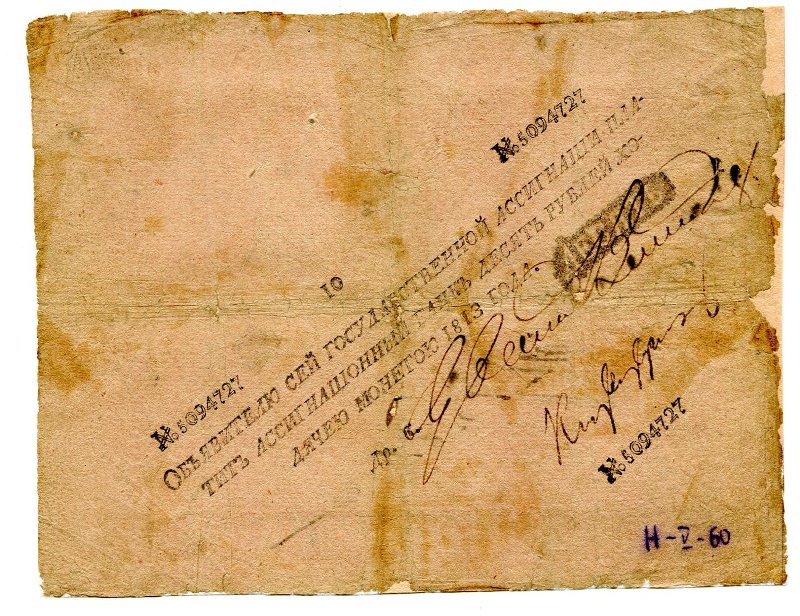 №5094727
10
№5094727
Объявителю сей государственной ассигнаціи пла-
титъ ассигнаціонный банкъ десять рублей хо-
дячею монетою 1813 года.
№5094727
Н-V-60